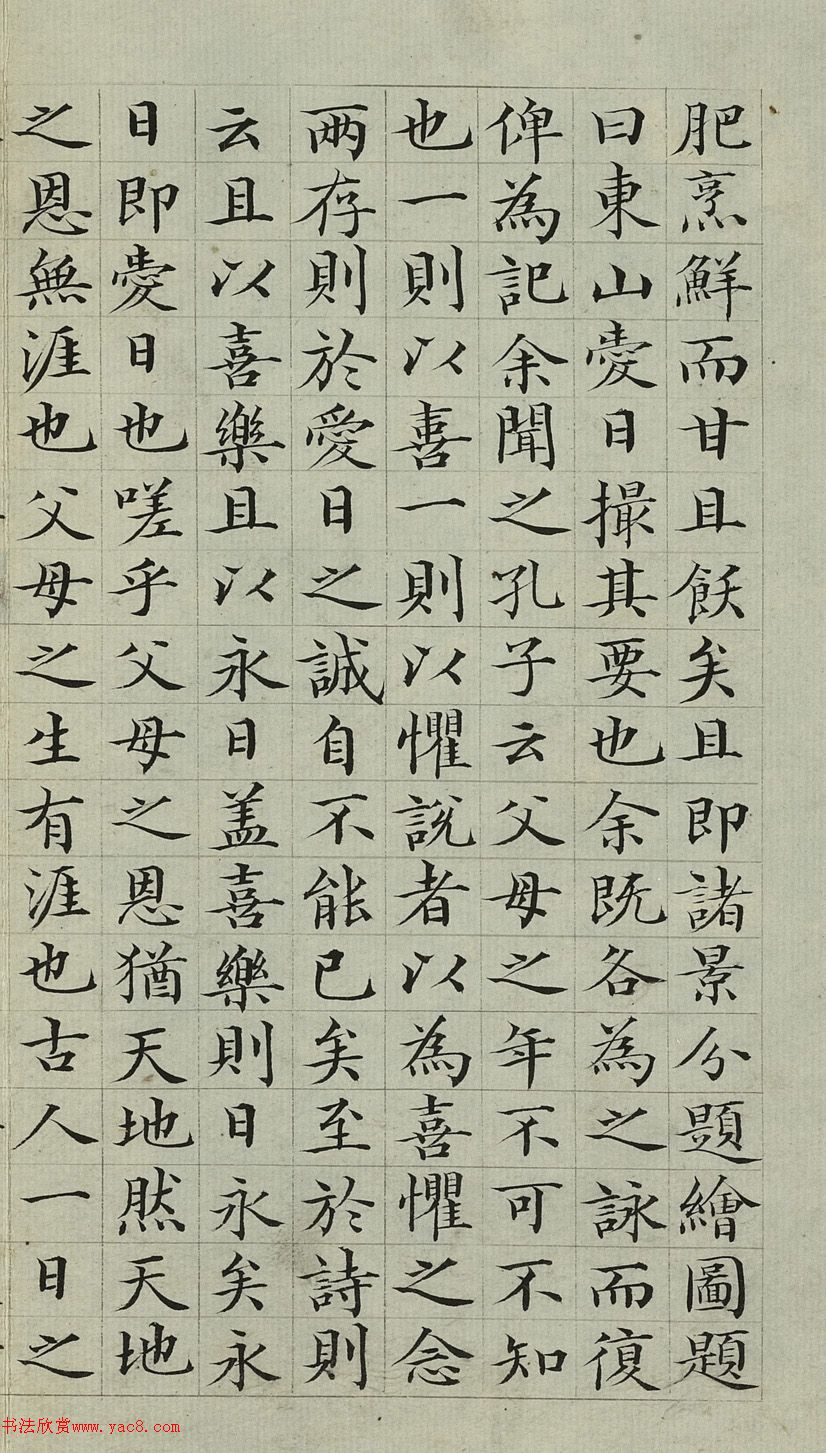 肥烹鮮而甘且飫矣且即諸景分題繪圖題
曰東山愛日撮其要也余既各為之詠而復
俾為記余聞之孔子云父母之年不可不知
也一則以喜一則以懼說者以為喜懼之念
兩存則於愛日之誠自不能已矣至於詩則
云且以喜樂且以永日盖喜樂則日永矣永
日即愛日也嗟乎父母之恩猶天地然天地
之恩無涯也父母之生有涯也古人一日之
书法欣赏www.yac8.com